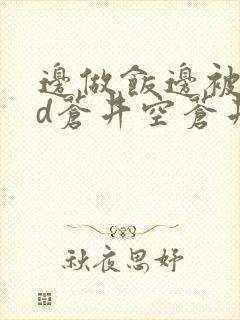 邊做飯邊被
d蒼井空蒼井
秋夜思妤